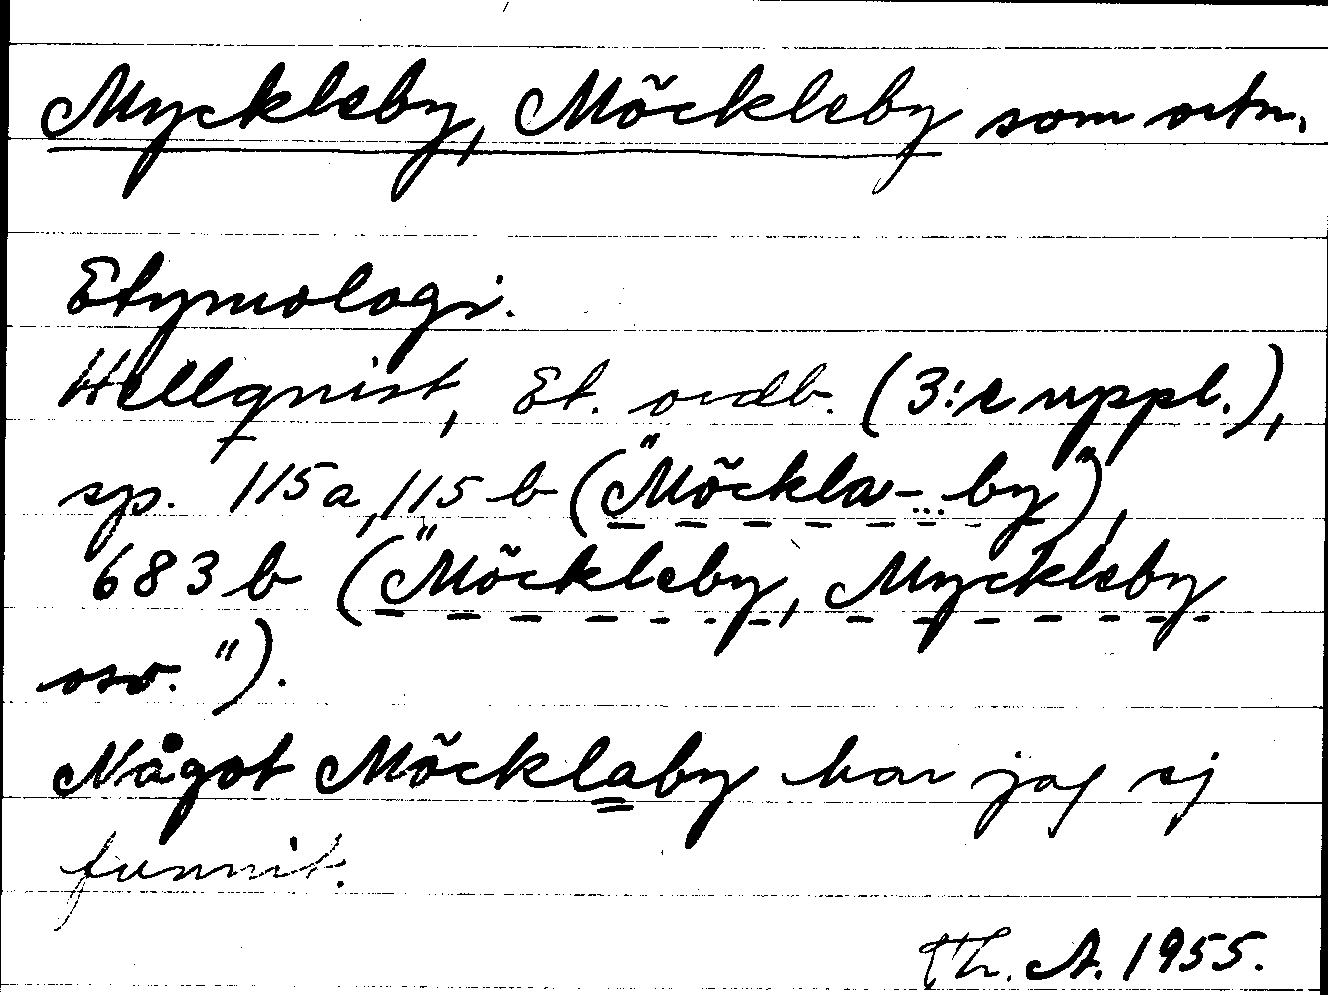 Myckleby, Möckleby som ortn.
Etymologi.
Hellquist, Et. ordb. (3:e uppl.),
sp. 115a, 115 b ("Möckla-...by"),
683 b ("Möckleby, Myckleby
osv.").
Något Möcklaby har jag ej
funnit.
Th. A. 1955.